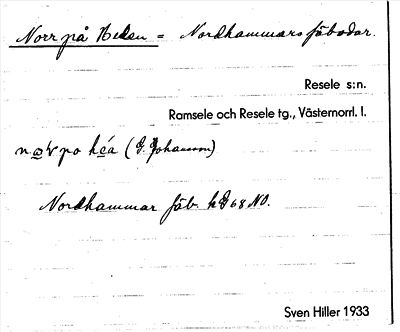 Norr på Heden = Nordhammars fäbodar.
Resele s:n.
Ramsele och Resele tg., Västernorrl. l.
po (G. Johansson)
Nordhammar fäb. k G 68 NO.
Sven Hiller 1933